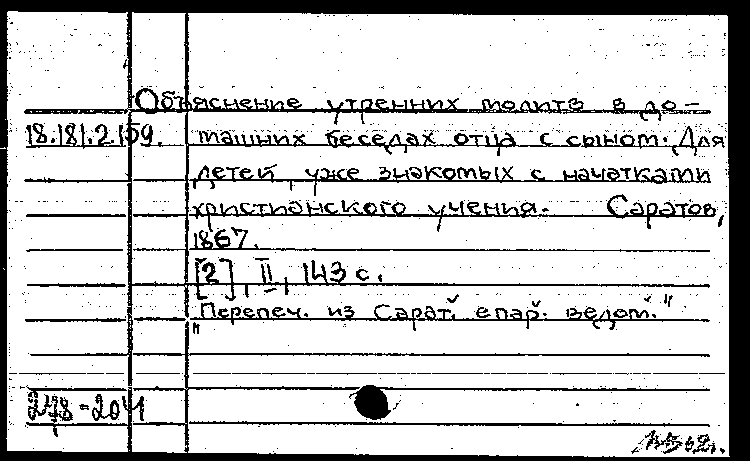 Объяснение утренних молитв в до-
18.181.2.159. машних беседах отца с сыном. Для
детей, уже знакомых с начатками
христианского учения. Саратов,
1867.
[2], II, 143 с.
"Перепеч. из Сарат. епар. ведом."
278-2041